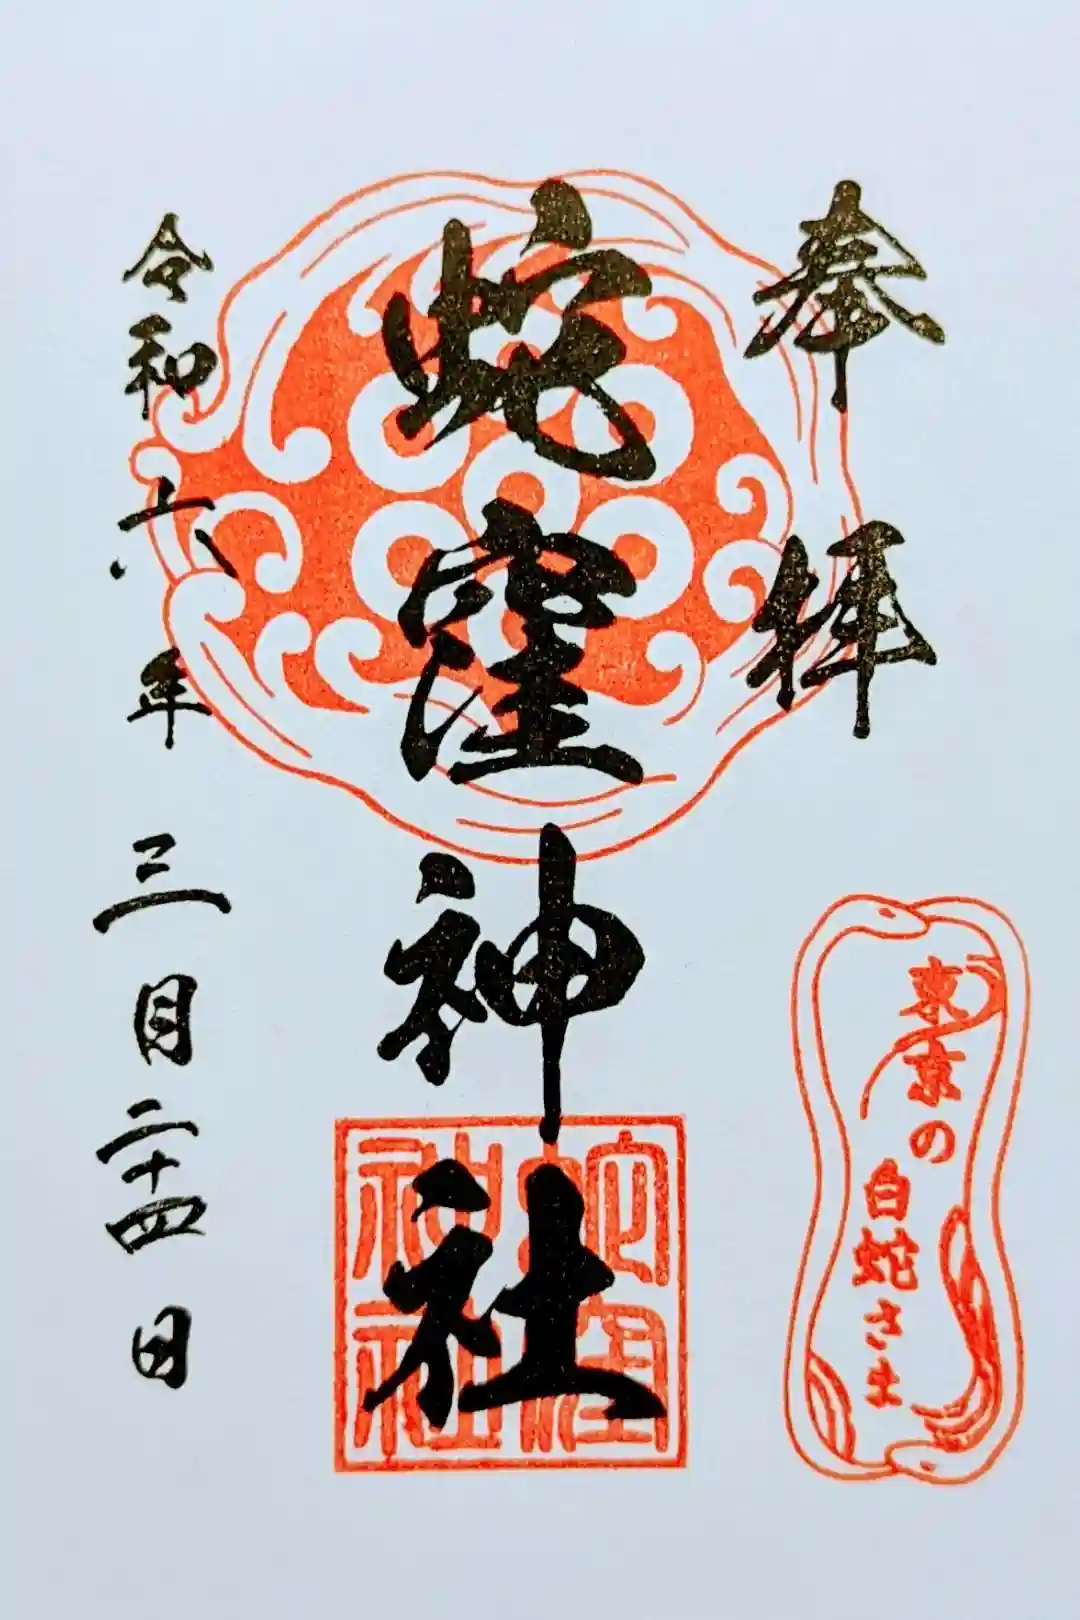 奉拝
東京の
白蛇さま
蛇窪神社
蛇窪
神社
令和六年三月二十四日